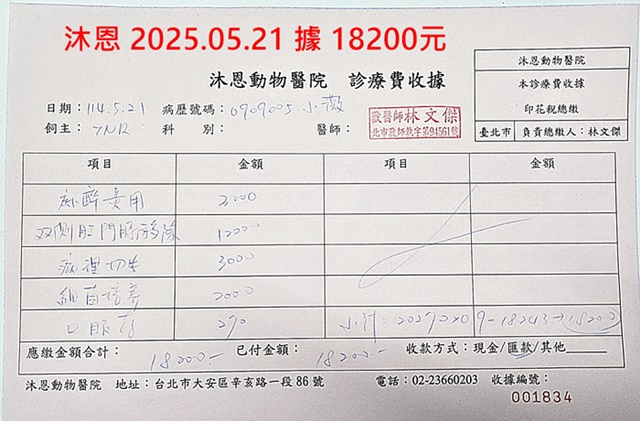 沐恩 2025.05.21 據 18200元
沐恩動物醫院 診療費收據
沐恩動物醫院
本診療費收據
印花稅總繳
臺北市 負責總繳人：林文傑
日期：114.5.21 病歷號碼：0909005 小薇
飼主：TNR 科 別： 醫師：
獸醫師 林文傑
北市獸師執字第94561號
項目 金額 項目 金額
麻醉費用 3000
双側肛門腺移除 12000
病理切片 3000
細菌培養 2000
口服药 270 小計：20270x0.9=18243→18200
應繳金額合計： 18200- 已付金額： 18200- 收款方式：現金/匯款/其他
沐恩動物醫院 地址：台北市大安區辛亥路一段86號 電話：02-23660203 收據編號：
001834